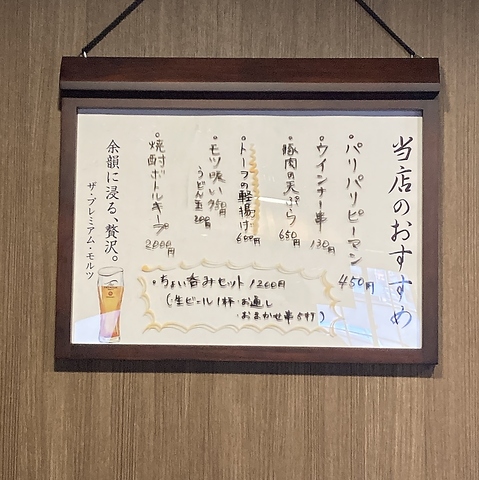 当店のおすすめ
・パリパリピーマン 450円
・ウインナー串 130円
・豚肉の天ぷら 650円
・トーフの軽揚げ 600円
・モツ吸い 950円
うどん玉 200円
・焼酎ボトルキープ 2000円
・ちょい呑みセット 1200円
(生ビール1杯・お通し
・おまかせ串5本)
余韻に浸る、贅沢。
ザ・プレミアム・モルツ